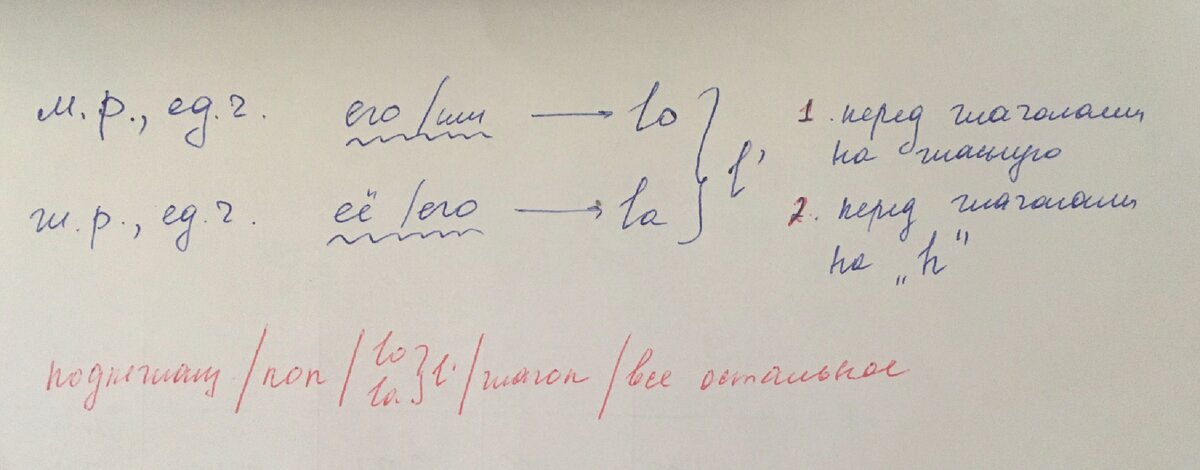 м.р., ед.ч. его/ии → lo } l' 1. перед глаголами
на гласную
ж.р., ед.ч. её/его → la 2. перед глаголами
на „h"
подлежащ/non/lo la } l'/глагол/все остальное